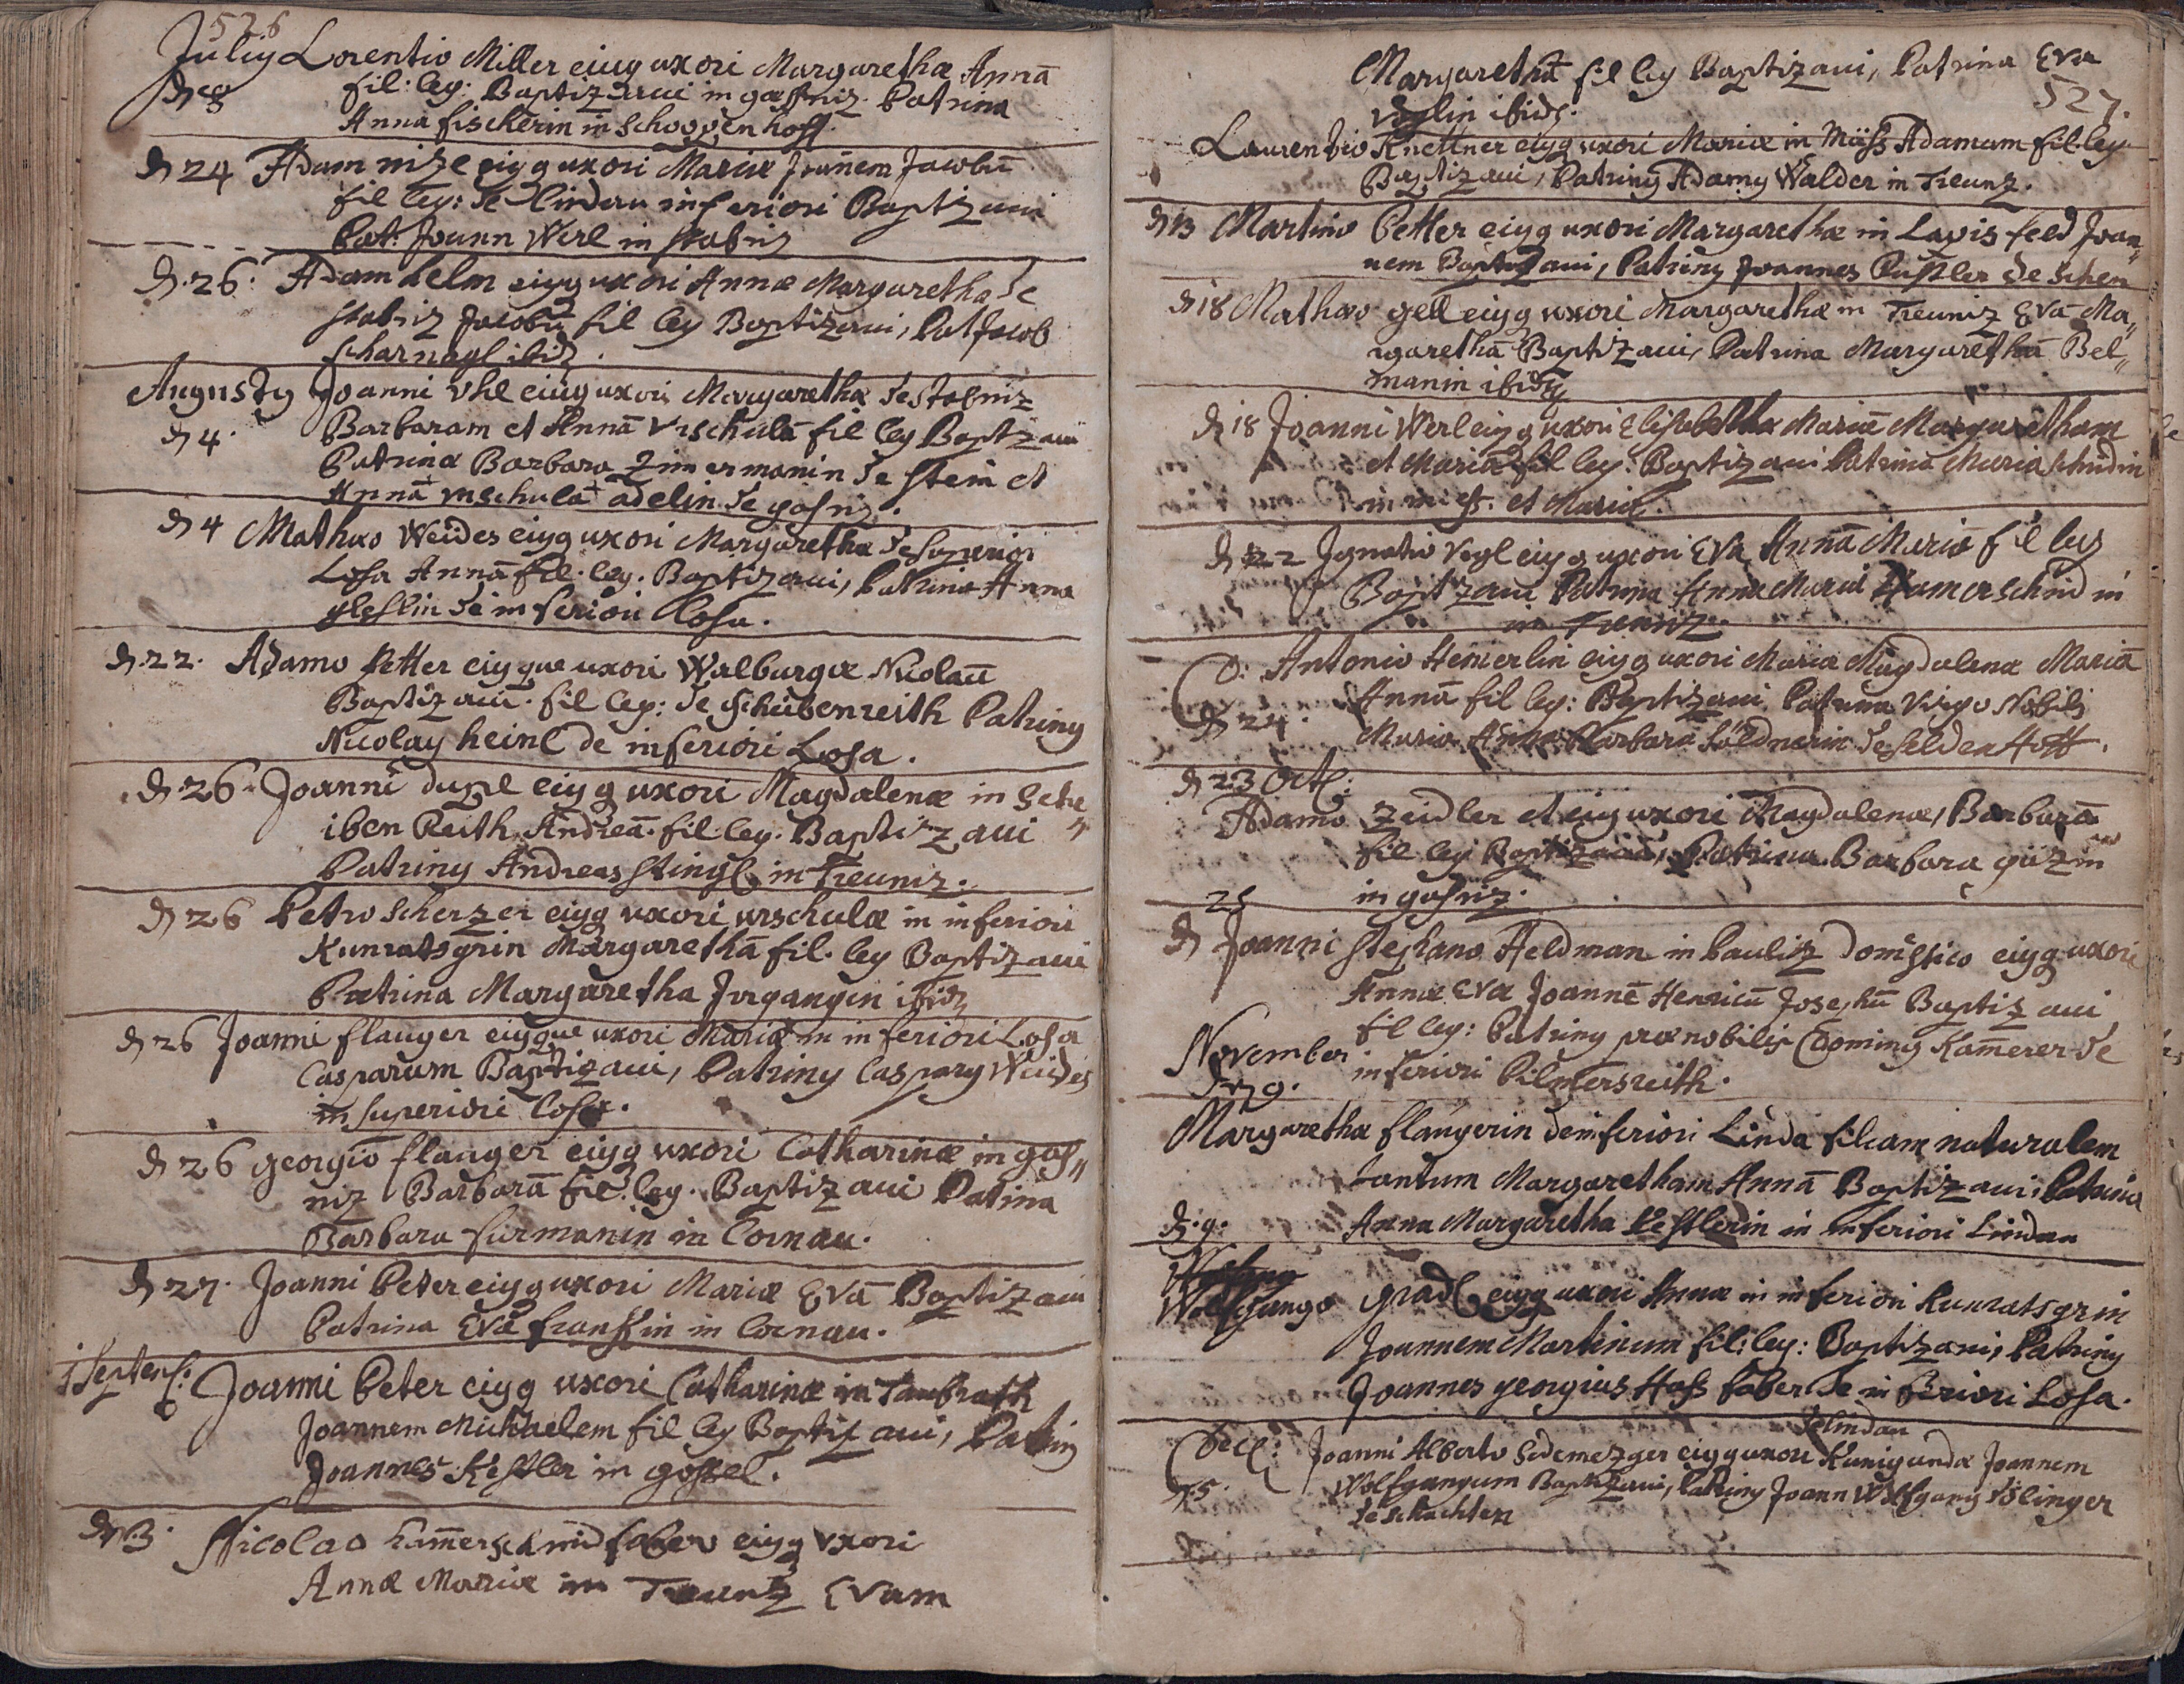 526
Julij Lorentio Miller eiusq uxori Margarethæ Annā
d 8 fil: leg: Baptizaui in gossniz. Patrina
Anna fischerin in Schoppenhoff.
d 24 Adam nize eiusq uxori Mariæ Joanem Jacobū
fil leg: de lindau inferiori Baptizaui
Pat: Joann Werl in stabniz
d. 26. Adam helm eiusq uxori Annæ Margaretha de
stabniz Jacobū fil leg Baptizaui, Pat Jacob
scharnagl ibid.
Augusty Joanni Vhl eiusq uxori Margarethæ de stabniz
d 4. Barbaram et Annā Vrschulā fil leg Baptizaui
Patrina Barbara Zimermanin de stein et
Annā urschulā adelin de gosniz.
d 4 Mathæo Weides eiusq uxori Margarethæ de superiori
Losa Annā fil. leg. Baptizaui, Patrina Anna
de inferiori losa.
d. 22. Adamo Petter eiusque uxori Walburgæ Nicolaū
Baptizaui. fil leg: de schübenreith Patrinus
Nicolaus heinl de inferiori Losa.
d. 26. Joanni dupl eiusq uxori Magdalenæ in Sche„
iben Reith Andreā. fil leg. Baptizaui
Patrinus Andreas stingl in Treuniz.
d 26 Petro Scherzer eiusq uxori urschulæ in inferiori
Kunratsgrin Margarethā fil. leg Baptizaui
Patrina Margaretha Jrgangin ibid
d 26 Joanni flauger eiusque uxori Mariæ in inferiori Losa
Casparum Baptizaui, Patrinus Casparus Weides
in superiori Losa.
d 26 georgio flauger eiusq uxori Catharinæ in gos„
niz Barbarā fil. leg. Baptizaui Patrina
Barbara furmanin in Cornau.
d 27. Joanni Peter eiusq uxori Mariæ Evā Baptizaui
Patrina Eva in Cornau.
1 Septemb: Joanni Peter eiusq uxori Catharinæ in Taubrath
Joannem Michaelem fil leg Baptizaui, Patrinus
Joannes Kestler in gossel.
d 13. Nicolao Hamerschmid fabro eiusq Vxori
Annæ Mariæ in Treunz Evam
Margarethā fil leg Baptizaui, Patrina Eva
527.
Voglin ibid.
Laurentio Knettner eiusq uxori Mariæ in Müss Adamum fil leg
Baptizaui, Patrinus Adamus Walder in Treunz.
d 13 Martino Petter eiusq uxori Margarethæ in Lapis feld Joan„
nem Baptizaui, Patrinus Joannes de schen
d 18 Mathæo gell eiusq uxori Margarethæ in Treuniz Evā Ma„
rgarethā Baptizaui, Patrina Margarethā Bel„
manin ibid
d 18 Joanni Werl eiusq uxori Elisabetha Mariā Margaretham
et Mariā fil leg. Baptizaui Patrina Maria schmidin
in mies. et Maria.
d 22 Jgnatio Vogl eiusq uxori Eva Annā Mariā fil leg
Baptizaui Patrina Anna Maria Hamerschmidin
in Treuniz.
D. Antonio Hemerlin eiusq uxori Mariæ Magdalenæ Mariā
d 24. Annā fil leg: Baptizaui Patrina Virgo Nobilis
Maria Anna Barbara söldnerin de selden Hoff.
d 23 Oct:
Adamo Zeidler et eius uxori Magdalenæ, Barbarā
fil leg Baptizaui, Patrina Barbara güzin
in gosniz.
25
d Joanni stephano Heldman in Pauliz domestico eiusq uxori
Annæ Eva Joannē Henricū Josephū Baptizaui
fil leg: Patrinus prænobilis Dominus Kamerer de
November inferiori Pilmersreith.
d 9.
Margarethæ flaugerin de inferiori Linda filiam naturalem
tantum Margaretham Annā Baptizaui, Patrina
d. 9. Anna Margaretha Kestlerin in inferiori Lindau
Wolfgango gradl eiusq uxori Annæ in inferiori Kunratsgrin
Joannem Martinum fil: leg: Baptizaui, Patrinus
Joannes georgius Hass faber de inferiori Losa.
de lindau
Dec: Joanni Alberto Sedemezger eiusq uxori Kunigunda Joannem
d 5. Wolfgangum Baptizaui, Patrinus Joann Wolfgang
de schachten